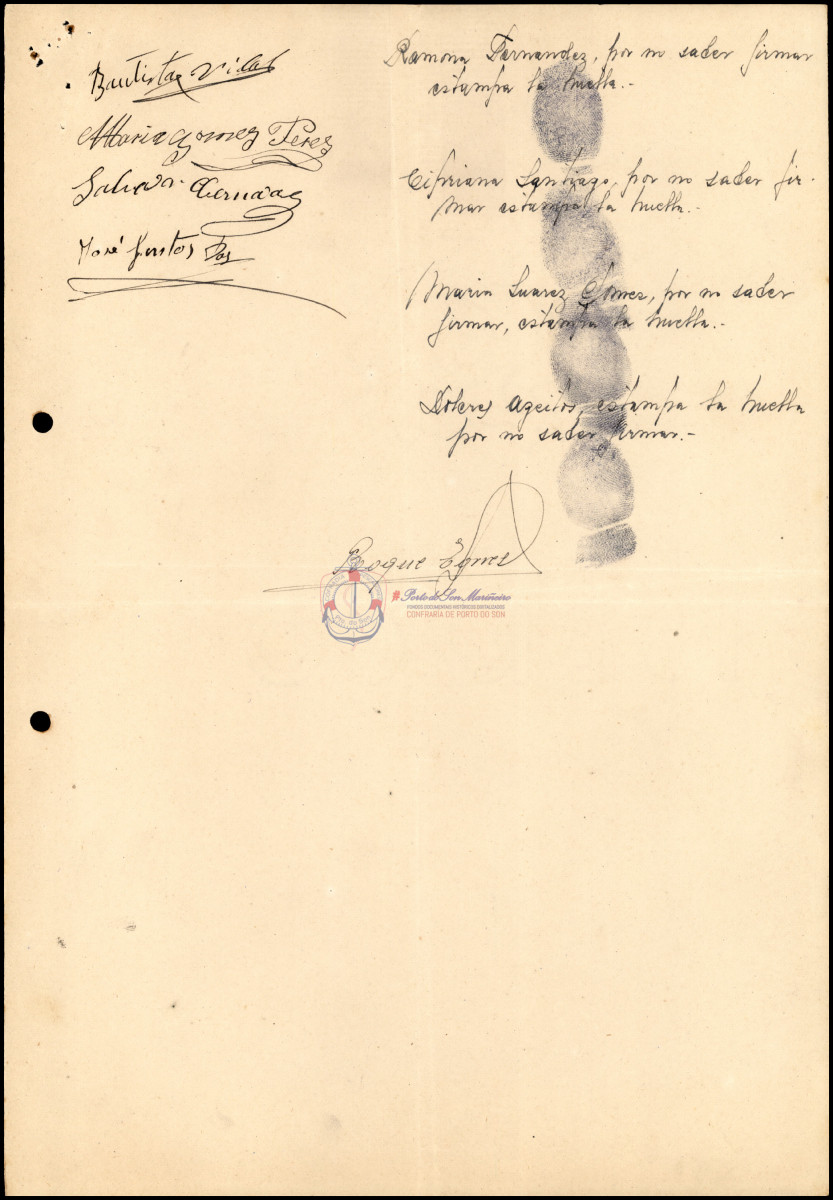 Bautista Vidal
Maria Gomez Perez
José Santos
Ramona Fernandez, por no saber firmar
estampa la huella.-
Cipriana Santiago, por no saber fir-
mar estampa la huella.-
Maria Suarez Gomez, por no saber
firmar, estampa la huella.-
Dolores Ageitos, estampa la huella
por no saber firmar.-
Roque
#PortodoSon Mariñeiro
FONDOS DOCUMENTAIS HISTÓRICOS DIXITALIZADOS
CONFRARÍA DE PORTO DO SON